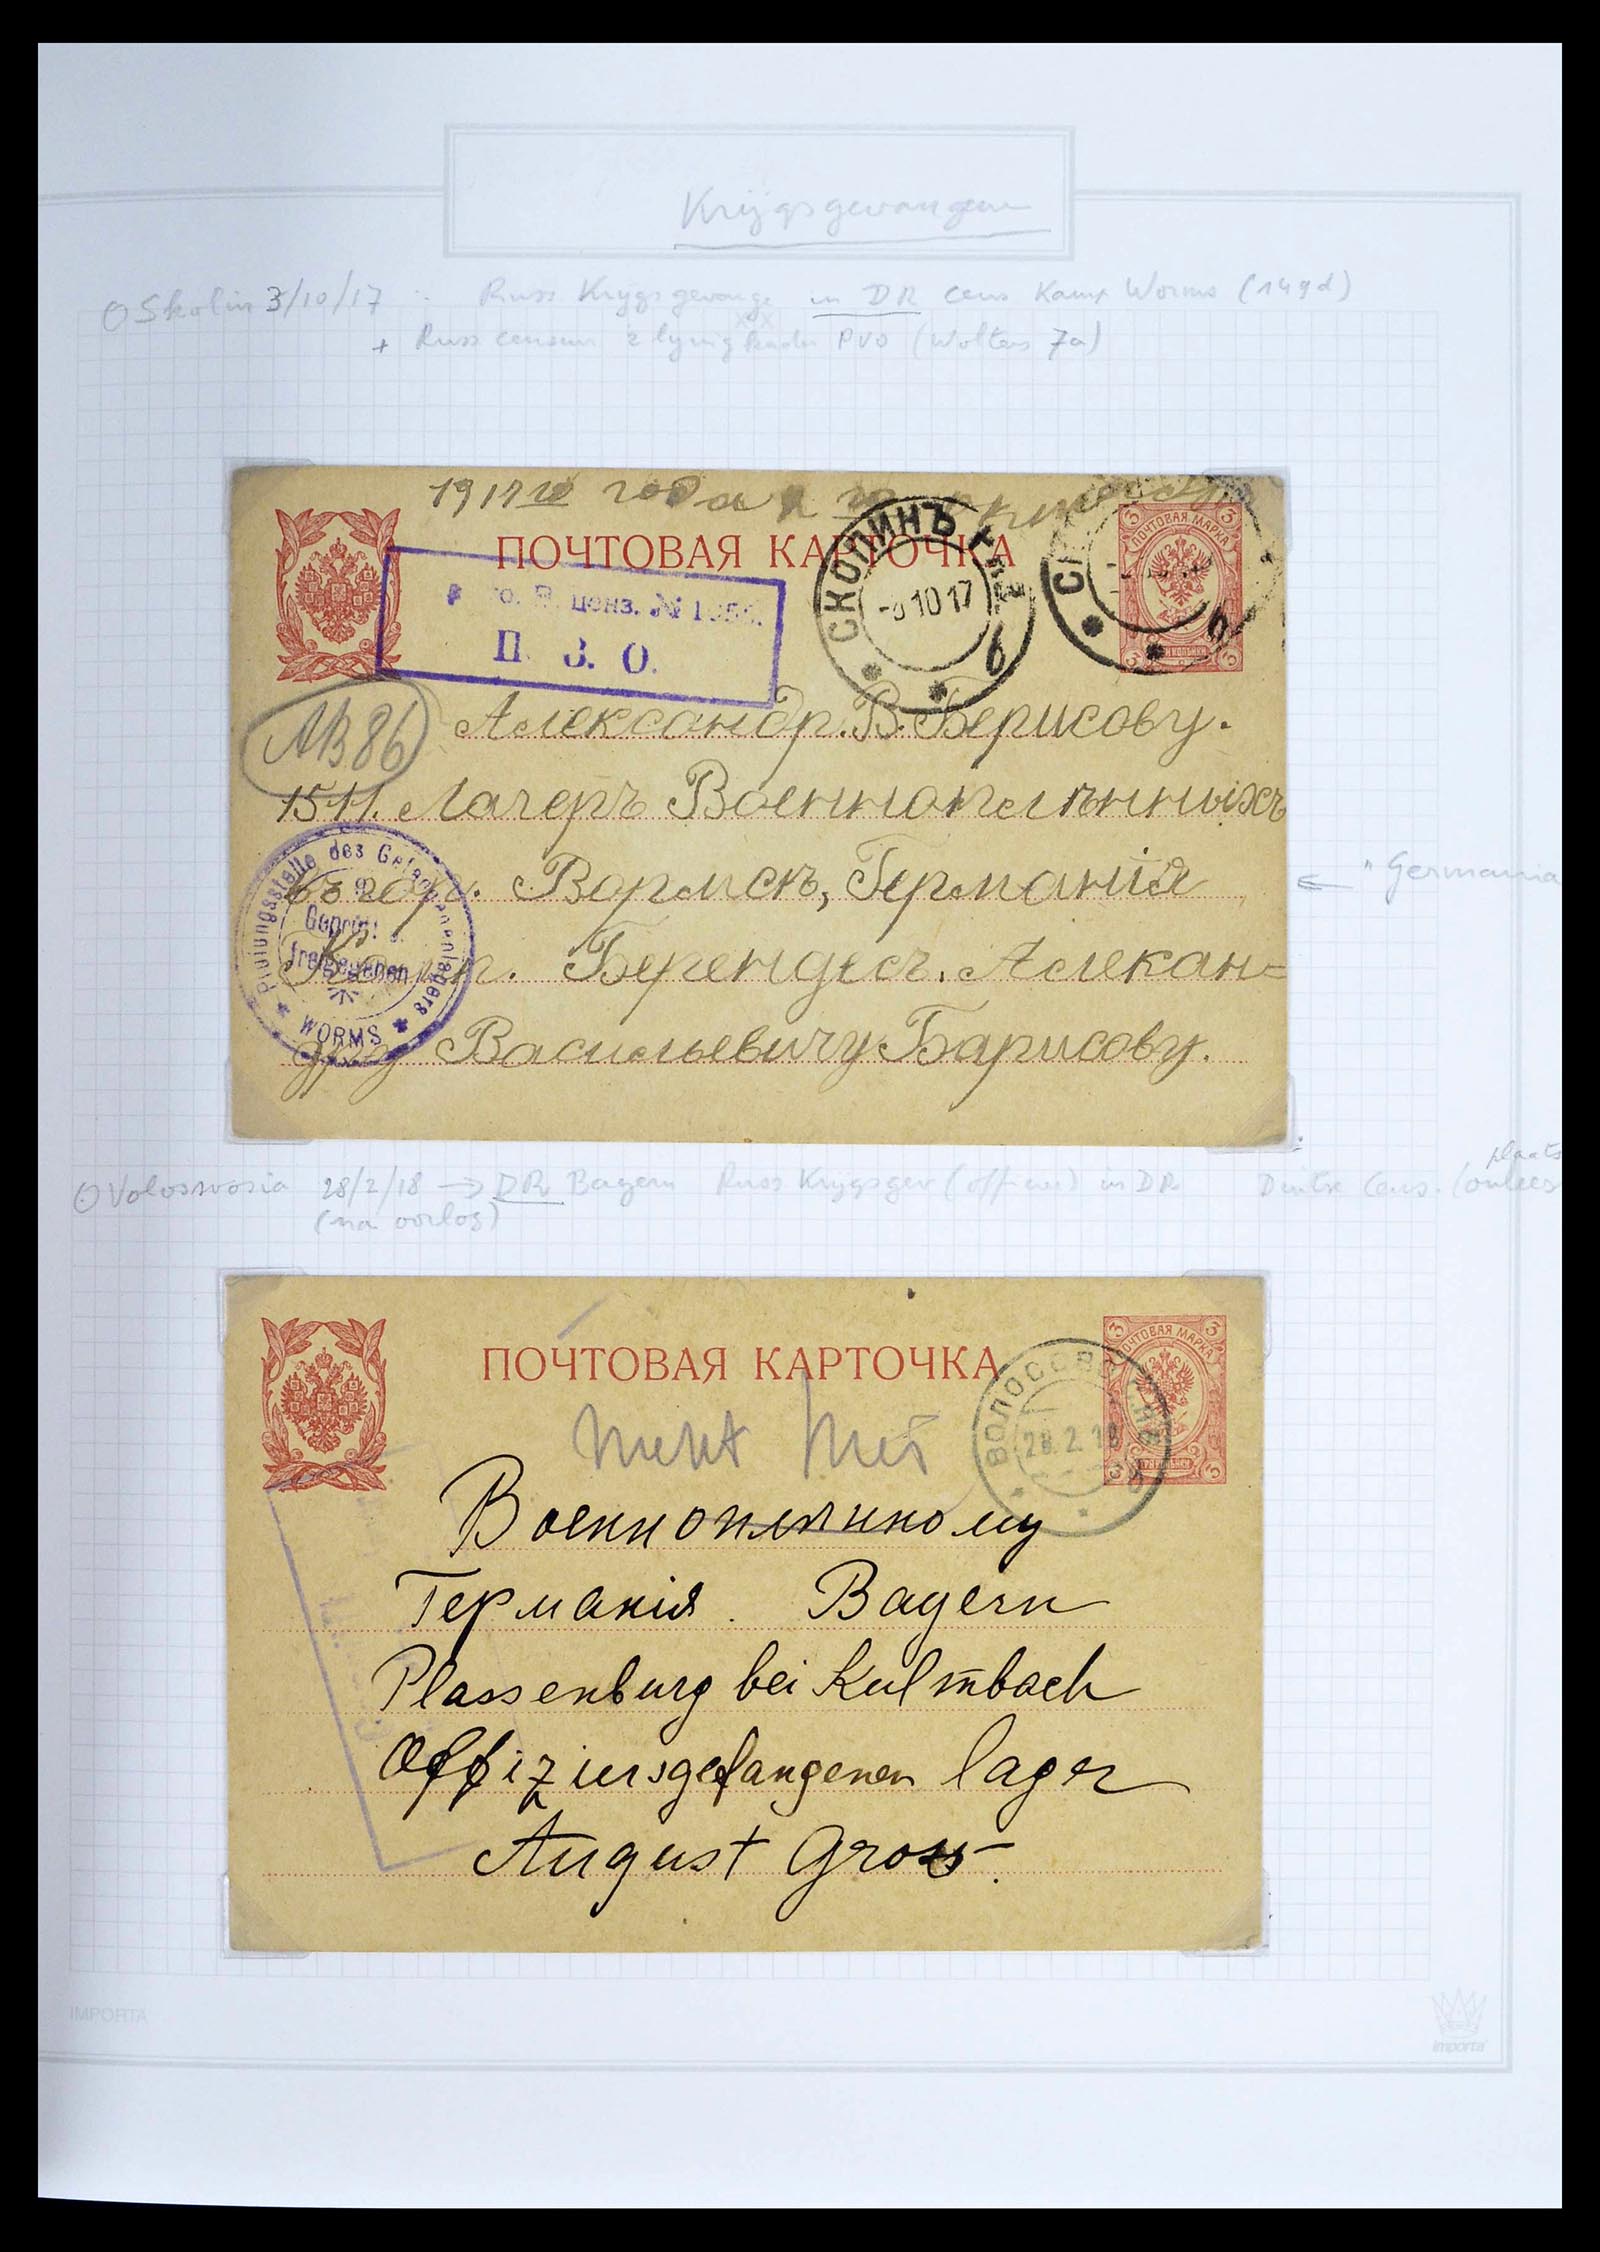 Krijgsgevangen
Skolin 3/10/17 Russ Krijgsgevange in DR cens Kamp Worms (149d)
+ Russ censuur 2 lijnig kader PVO (Wolters 7a)
1917го года
ПОЧТОВАЯ КАРТОЧКА
СКОПИНЪ
10 17
б
ценз. №
П. З. О.
3 ПОЧТОВАЯ МАРКА 3
AB 86
Александр. В. Берисову.
1511. Лагеръ Военноплѣнныхъ
въ гор. Вормсѣ, Германія
Берендесъ. Алекан=
дру Васильевичу Барисову.
Prüfungsstelle des Gefangenenlagers
Geprüft u.
freigegeben
WORMS
← "Germania
Volossvosia 28/2/18 → DR Bayern Russ Krijgsgev (officier) in DR Duitse Cens. (plaats onlees
(na oorlog)
ПОЧТОВАЯ КАРТОЧКА
3 ПОЧТОВАЯ МАРКА 3
ТРИ КОПѢЙКИ
28.2.18
Военноплѣнному
Германія. Bayern
Plassenburg bei Kulmbach
Offiziersgefangenen lager
August Gross.
IMPORTA
importa